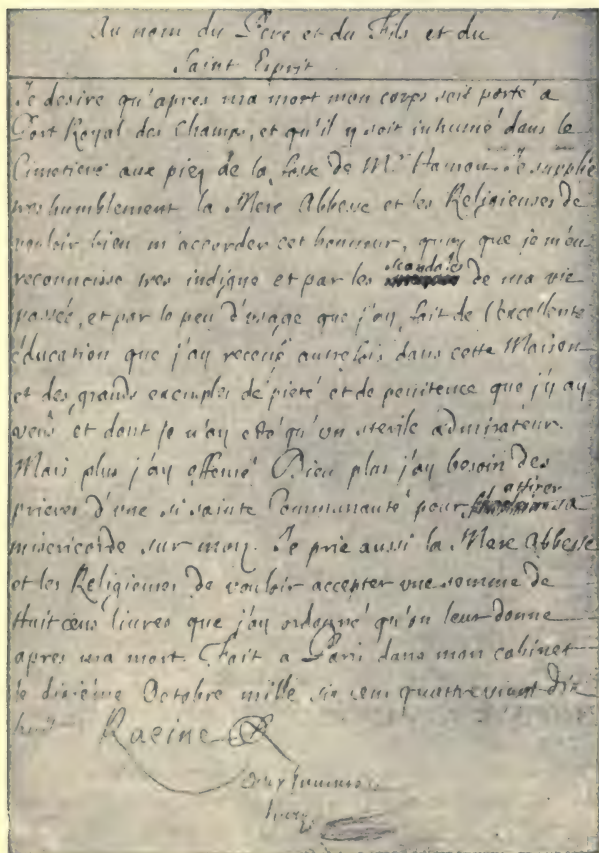 Au nom du Pere et du Fils et du
Saint Esprit.
Je desire qu'apres ma mort mon corps soit porté a
Port Royal des Champs, et qu'il y soit inhumé dans le
Cimetiere aux piez de la fosse de Mr Hamon. Je supplie
tres humblement la Mere Abbesse et les Religieuses de
vouloir bien m'accorder cet honneur, quoy que je m'en
reconnoisse tres indigne et par les scandales de ma vie
passée, et par le peu d'usage que j'ay fait de l'excellente
éducation que j'ay receuë autrefois dans cette Maison
et des grands exemples de pieté et de penitence que j'y ay
veus et dont je n'ay esté qu'un sterile admirateur.
Mais plus j'ay offensé Dieu plus j'ay besoin des
prieres d'une si sainte Communauté pour attirer sa
misericorde sur moy. Je prie aussi la Mere Abbesse
et les Religieuses de vouloir accepter une somme de
Huit cens livres que j'ay ordonné qu'on leur donne
apres ma mort. Fait a Paris dans mon cabinet
le dixiéme Octobre mille six cens quatre vingt dix
huit
Racine